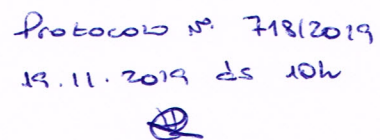 Protocolo Nº. 718/2019
19.11.2019 às 10h